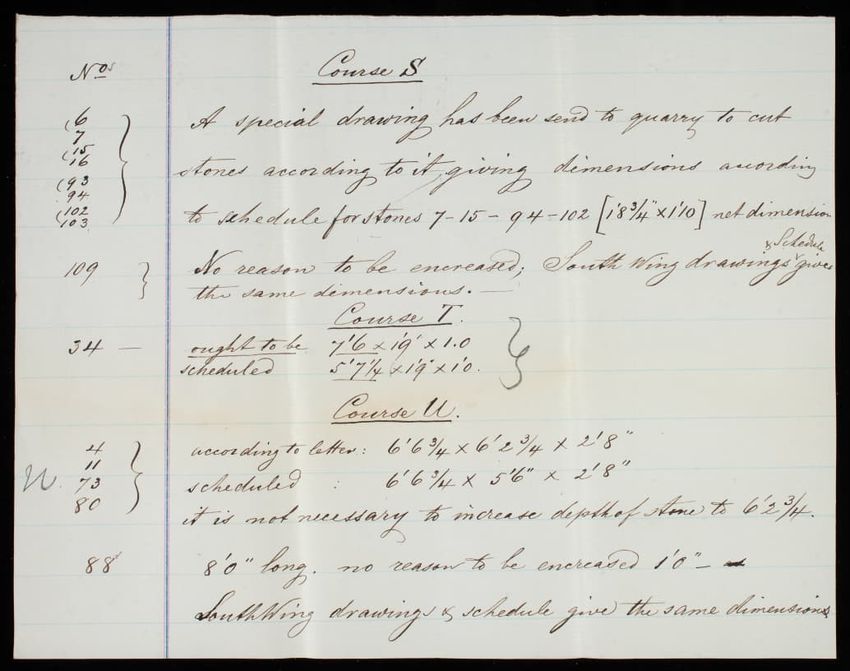 Nos Course S
(6 A special drawing has been send to quarry to cut
7
(15
16 stones according to it, giving dimensions acording
(93
94
(102 to schedule for stones 7-15-94-102 [1'8 3/4" x 1'10] net dimension
103
& Schedule
109 No reason to be encreased; South Wing drawings gives
the same dimensions. —
Course T.
34 — ought to be 7'6 x 1'9" x 1.0
scheduled 5'7 1/4 x 1'9" x 1'0.
Course U.
4 according to letter: 6'6 3/4 x 6'2 3/4 x 2'8"
11
73 scheduled : 6'6 3/4 x 5'6" x 2'8"
80 it is not necessary to increase depth of stone to 6'2 3/4.
88 8'0" long. no reason to be encreased 1'0" - as
South Wing drawings & schedule give the same dimensions